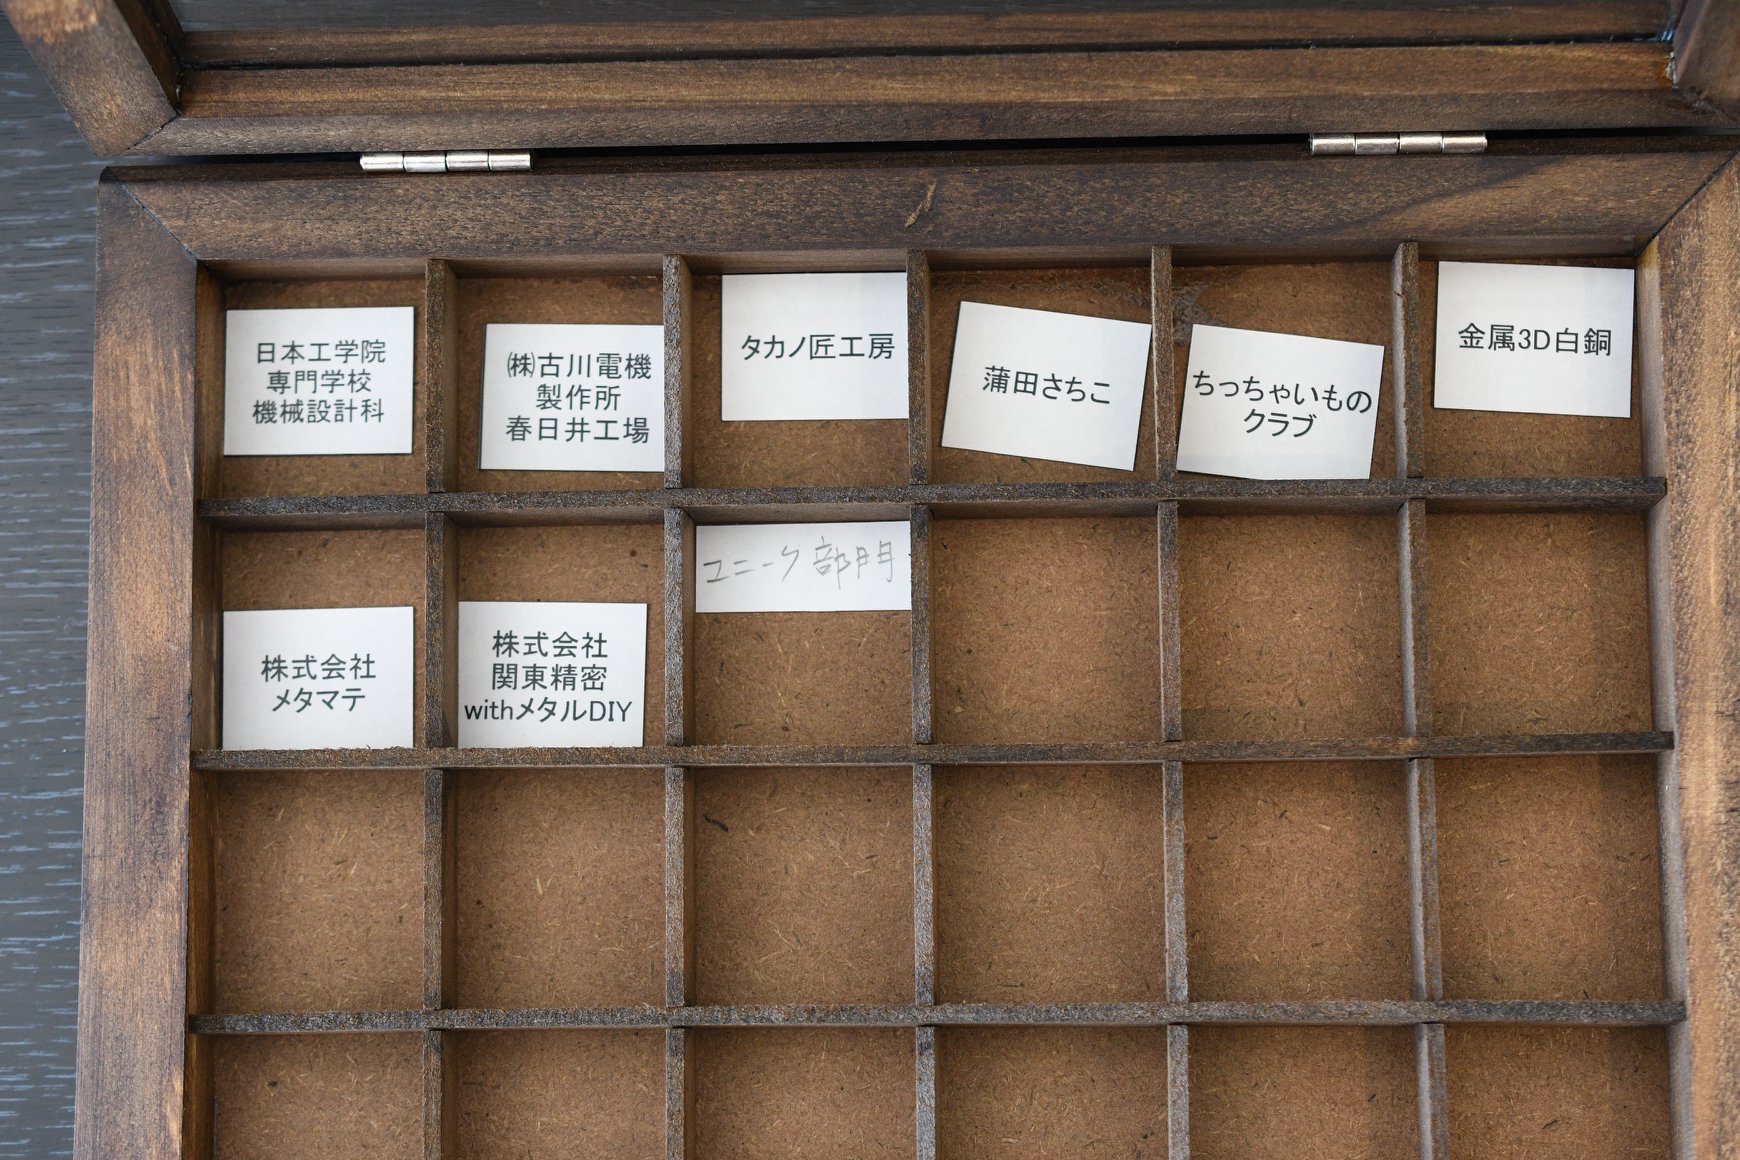 日本工学院
専門学校
機械設計科
㈱古川電機
製作所
春日井工場
タカノ匠工房
蒲田さちこ
ちっちゃいもの
クラブ
金属3D白銅
株式会社
メタマテ
株式会社
関東精密
withメタルDIY
ユニーク部門